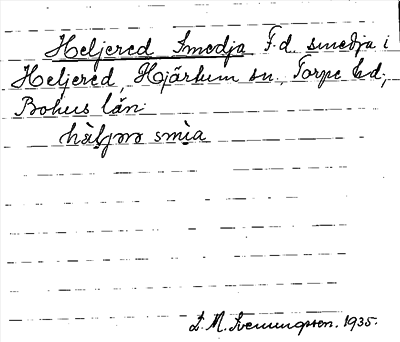 Heljered Smedja F.d. smedja i
Heljered, Hjärtum sn., Torpe hd.,
Bohus län.
smia
L. M. Svenungsson. 1935.